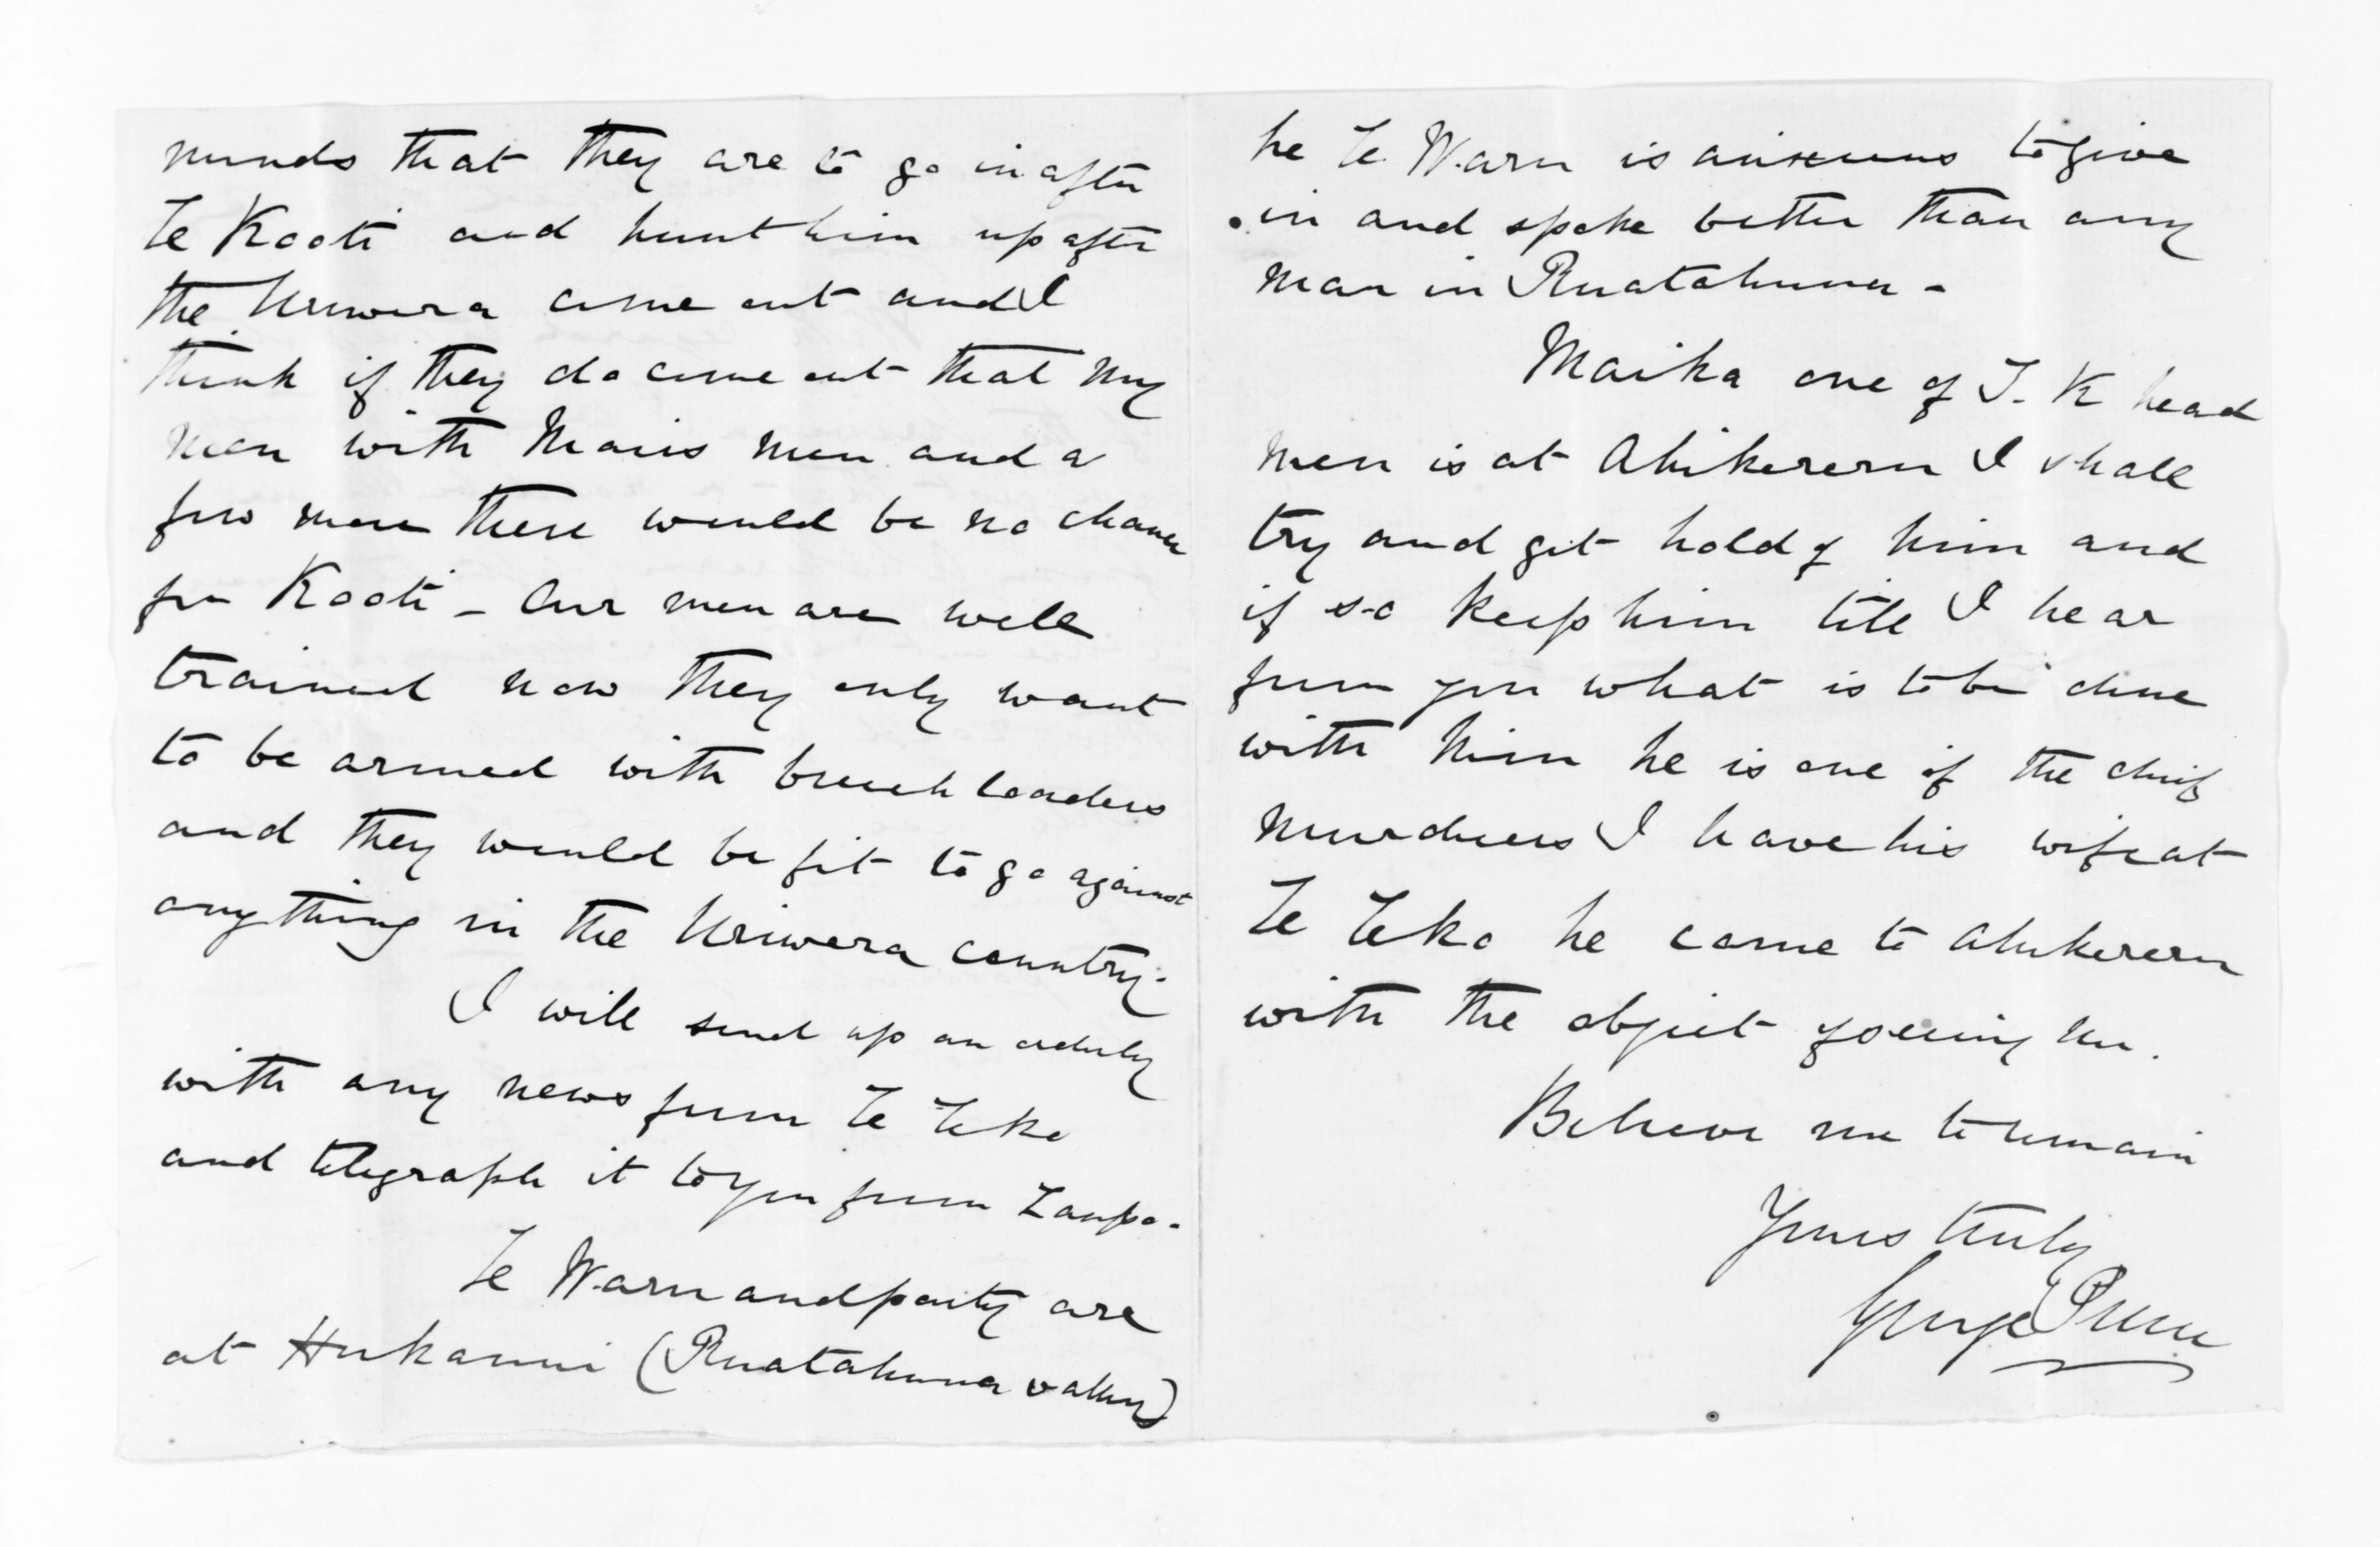 minds that they are to go in after
Te Kooti and hunt him up after
the Uriwera come out and I
think if they do come out that my
men with Mairs men and a
few more there would be no chance
for Kooti - Our men are well
trained now they only want
to be armed with breech loaders
and they would be fit to go against
anything in the Uriwera country.
I will send up an orderly
with any news from Te Teko
and telegraph it to you from Taupo.
Te Waru and party are
at Hukanui (Ruatahuna valley)
he Te Waru is anxious to give
in and spoke better than any
man in Ruatahuna -
Maika one of T. K head
men is at Ahikereru I shall
try and get hold of him and
if so keep him till I hear
from you what is to be done
with him he is one of the chief
murderers I have his wife at
Te Teko he came to Ahikereru
with the object of seeing her.
Believe me to remain
Yours truly
George Preece